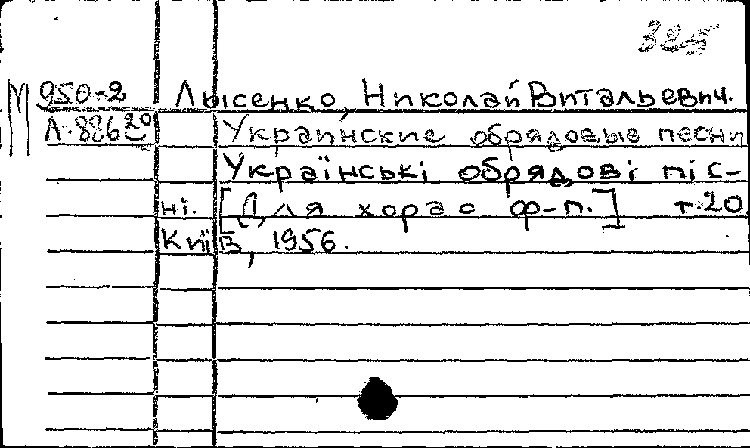 325
М 950-2 Лысенко, Николай Витальевич.
Л-88620 Украинские обрядовые песни
Українські обрядові піс-
ні. [Для хора с ф-п.] т.20
Київ, 1956.